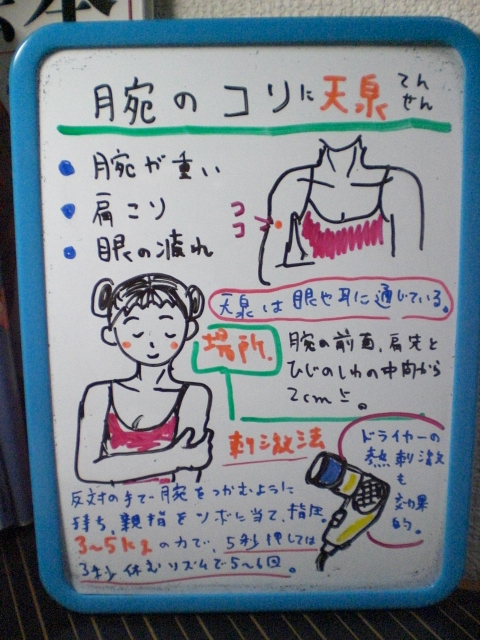 腕のコリに天泉
てんせん
腕が重い
肩こり
眼の疲れ
ココ
天泉は眼や耳に通じている。
場所.
腕の前面、肩先と
ひじのしわの中間から
2cm上。
刺激法
反対の手で腕をつかむように
持ち、親指をツボに当て、指圧。
3〜5kgの力で、5秒押しては
3秒休むリズムで5〜6回。
ドライヤーの
熱刺激
も
効果
的。